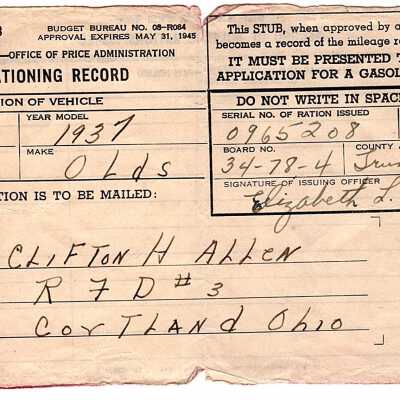 BUDGET BUREAU NO. 08-R084
APPROVAL EXPIRES MAY 31, 1945
—OFFICE OF PRICE ADMINISTRATION
TIONING RECORD
ION OF VEHICLE
YEAR MODEL
1937
MAKE
Olds
TION IS TO BE MAILED:
CLIFTON H ALLEN
R F D # 3
CORTLAND OHIO
This STUB, when approved by a
becomes a record of the mileage r
IT MUST BE PRESENTED T
APPLICATION FOR A GASOL
DO NOT WRITE IN SPAC
SERIAL NO. OF RATION ISSUED
0965208
BOARD NO.
34-78-4
COUNTY A
Trum
SIGNATURE OF ISSUING OFFICER
Elizabeth L.